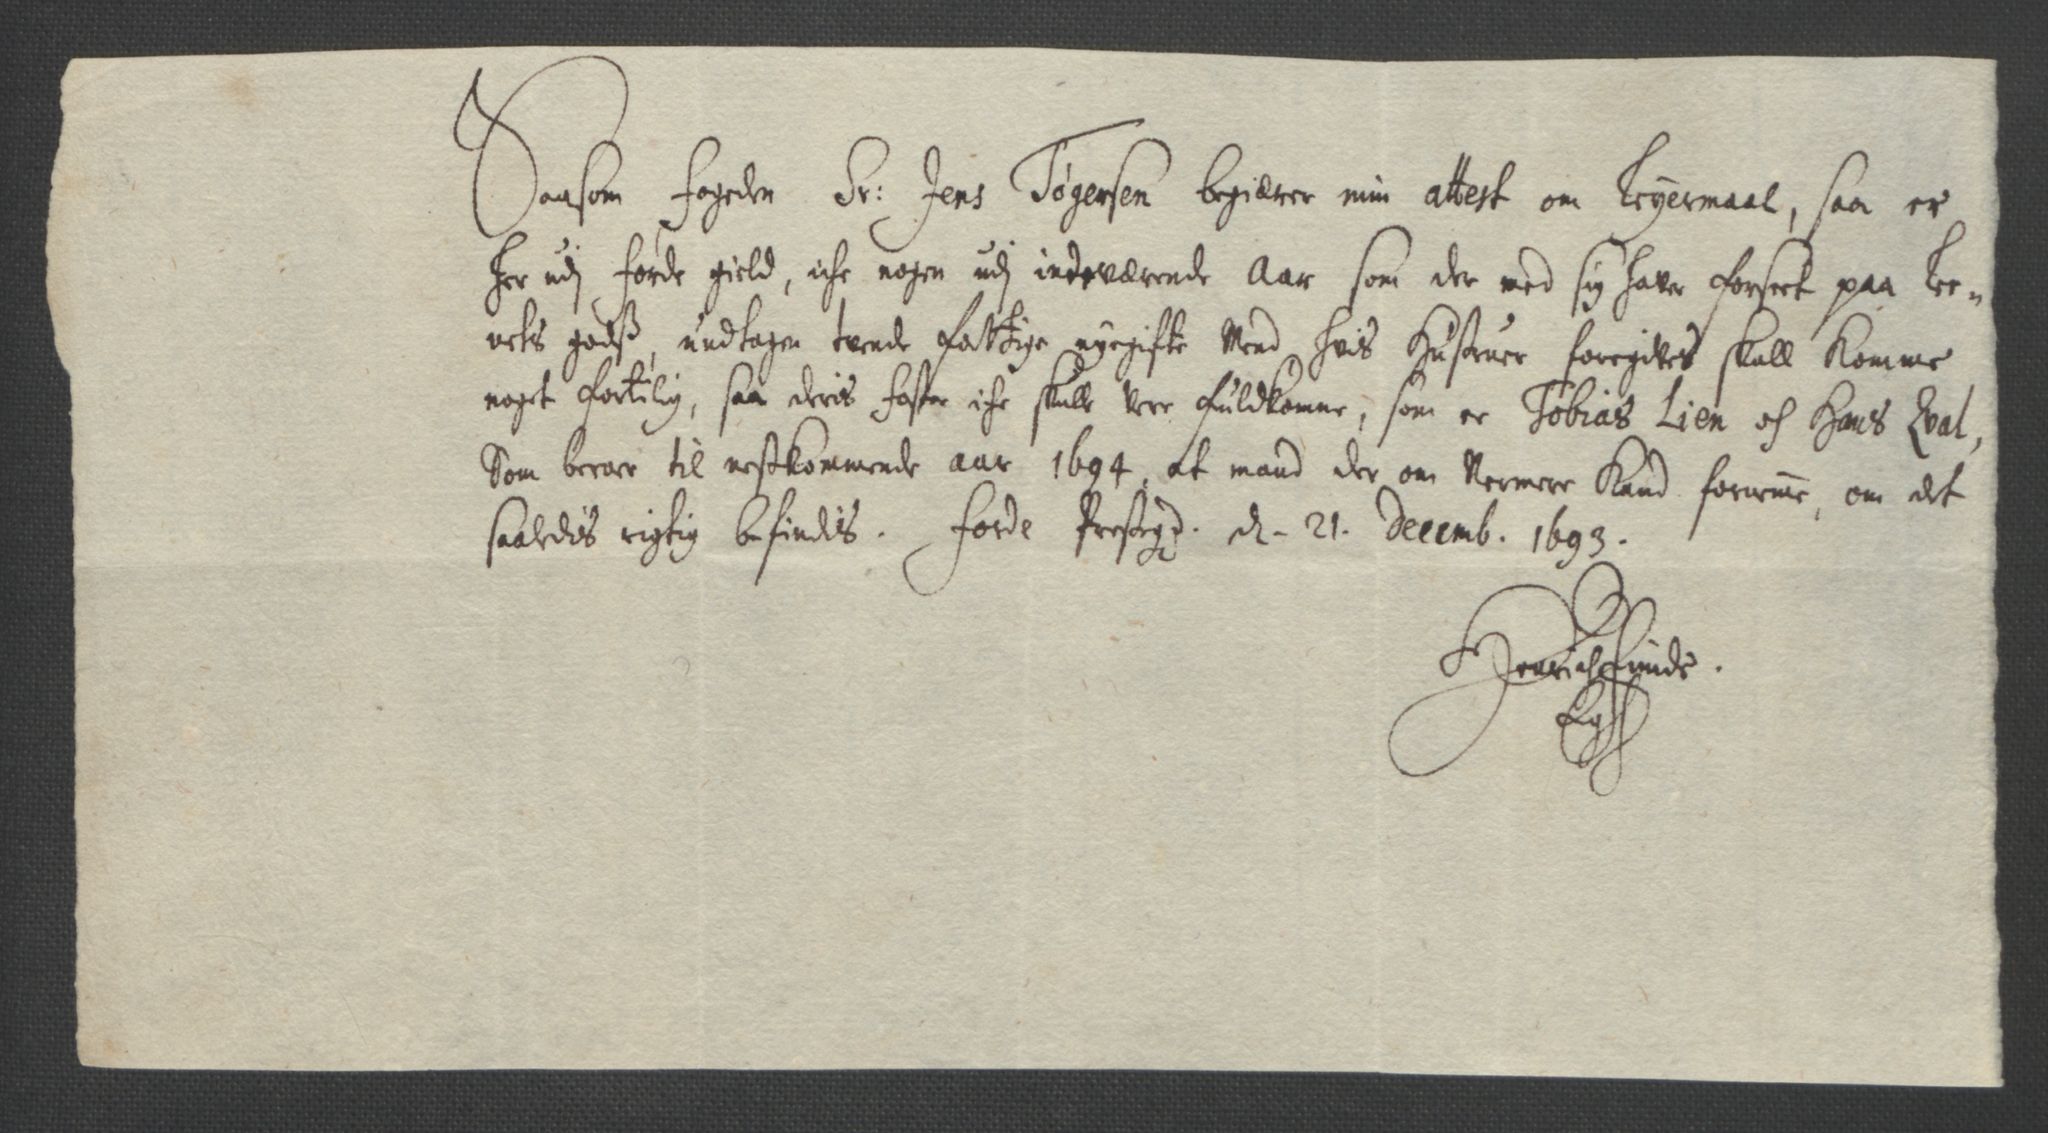 Saasom fogeden Sr: Jens Tøgersen begiærer min attest om Leyermaal, saa er
her udj førde gield, iche nogen udj indeværende Aar som der med sig haver forseet paa
godß, undtagen tvende fattige nyegifte Mend hvis Hustruer foregives skall komme
noget fortilig, saa deris foster iche skulle vere fuldkomne, som er Tobias Lien och Hans Qval,
Som beroer til nestkommende aar 1694, at mand der om Nermere kand forneme, om det
saaledis rigtig befindis. Førde Prestegd. d. 21. Decemb. 1693.
Henrich Finde.